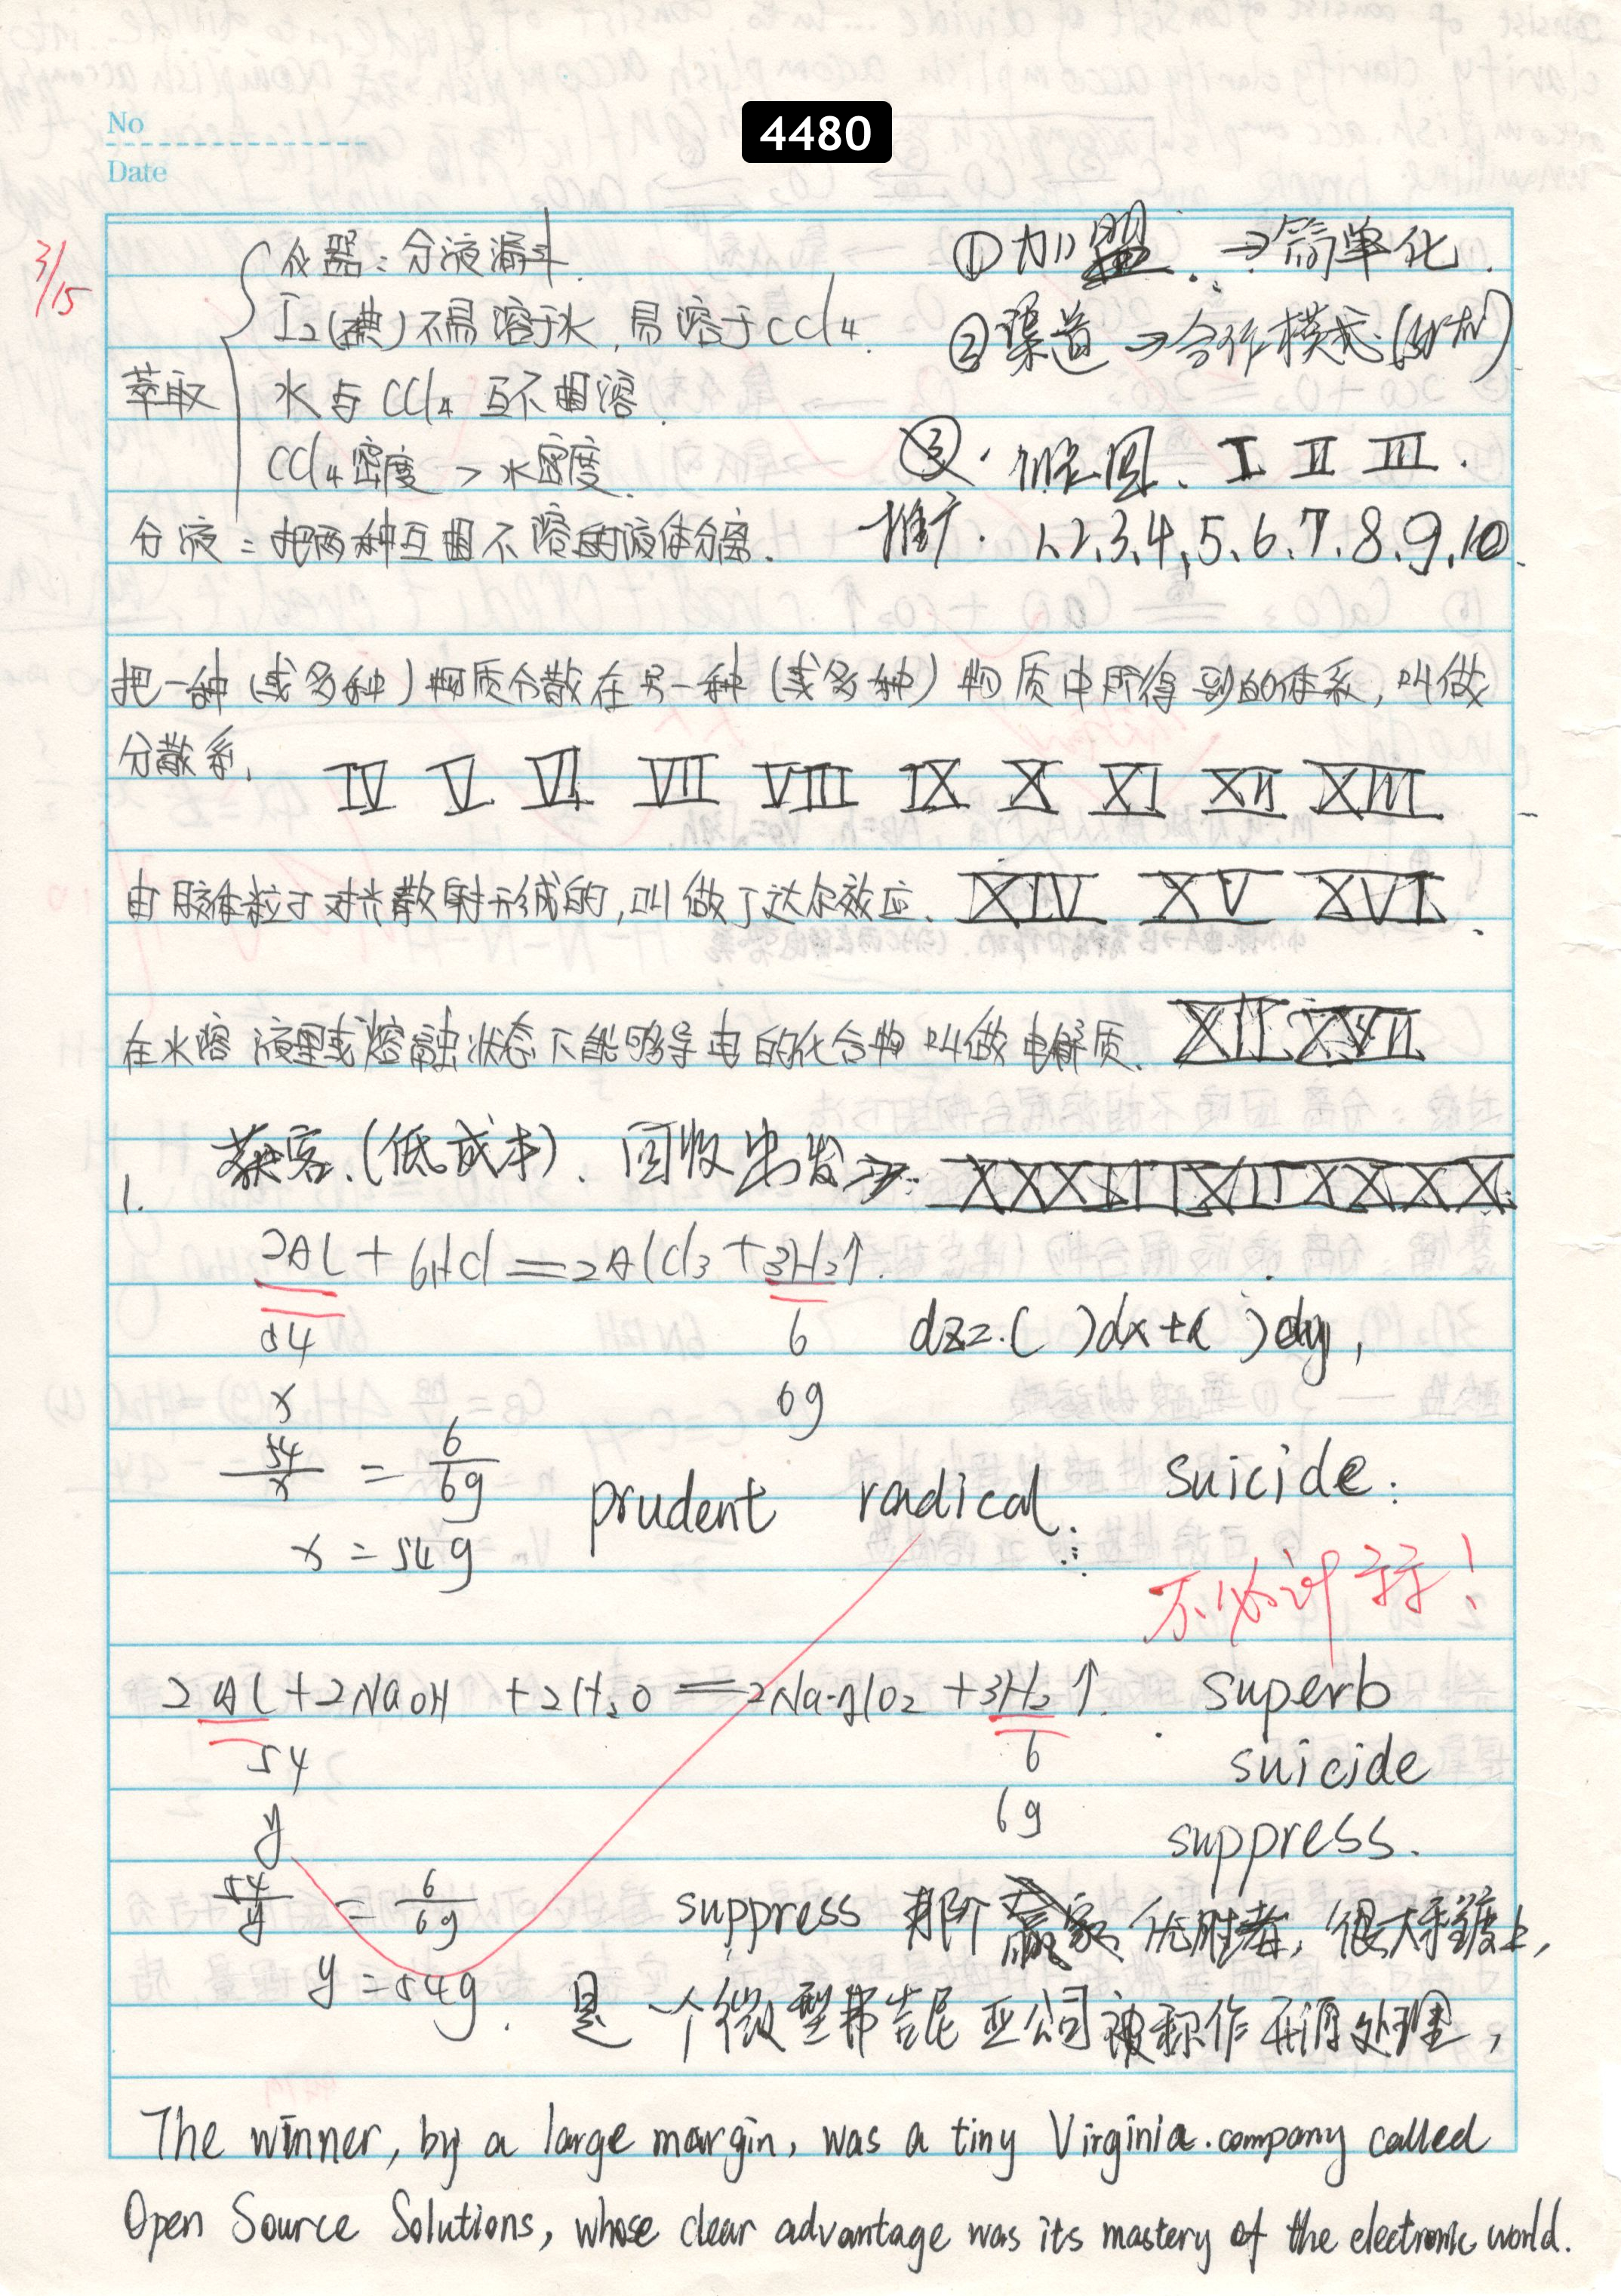 4480
No
Date
3/15
仪器:分液漏斗.
I₂(碘)不易溶于水,易溶于CCl₄.
萃取
水与CCl₄互不相溶.
CCl₄密度 > 水密度.
分液:把两种互相不溶的液体分离.
①加盟.→简单化.
②渠道→合作模式.
③. I II III.
推广. 1、2、3、4、5、6、7、8、9、10.
把一种(或多种)物质分散在另一种(或多种)物质中所得到的体系,叫做
分散系. IV V VI VII VIII IX X XI XII XIII
由胶体粒子对光散射形成的,叫做丁达尔效应. XIV XV XVI.
在水溶液里或熔融状态下能够导电的化合物叫做电解质. XII XVII
获客.(低成本). 回收出发→
1.
2Al + 6HCl = 2AlCl₃ + 3H₂↑.
54 6 dz=.( )dx+( )dy,
x 6g
54/x = 6/6g prudent radical. suicide.
x = 54g
不必计算!
2Al + 2NaOH + 2H₂O = 2NaAlO₂ + 3H₂↑. superb
54 6 suicide
y 6g suppress.
54/y = 6/6g suppress 那个赢家 优胜者, 很大手镀上,
y = 54g. 是一个微型弗吉尼亚公司被称作开源处理,
The winner, by a large margin, was a tiny Virginia. company called
Open Source Solutions, whose clear advantage was its mastery of the electronic world.